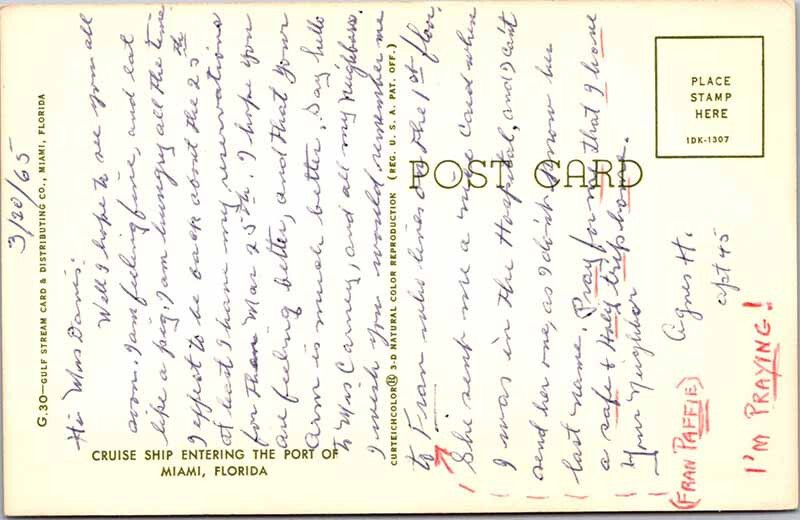 3/20/65
Hi Mrs Davis:
Well I hope to see you all
soon. I am feeling fine, and eat
like a pig, I am hungry all the time.
I expect to be back about the 25th
at least I have my reservations
for then Mar 25th. I hope you
are feeling better, and that your
arm is much better, Say hello
to Mrs Carney, and all my neighbors.
I wish you would remember me
to Fran who lives on the 1st floor,
She sent me a nice card when
I was in the Hospital, and I can't
send her one, as I don't know her
last name. Pray for me that I have
a safe & Holy trip home.
Your Neighbor
Agnes H.
apt 45
(FRAN PAFFIE)
I'M PRAYING!
G.30—GULF STREAM CARD & DISTRIBUTING CO., MIAMI, FLORIDA
CRUISE SHIP ENTERING THE PORT OF
MIAMI, FLORIDA
CURTEICHCOLOR® 3-D NATURAL COLOR REPRODUCTION (REG. U. S. A. PAT. OFF.)
POST CARD
PLACE
STAMP
HERE
1DK-1307